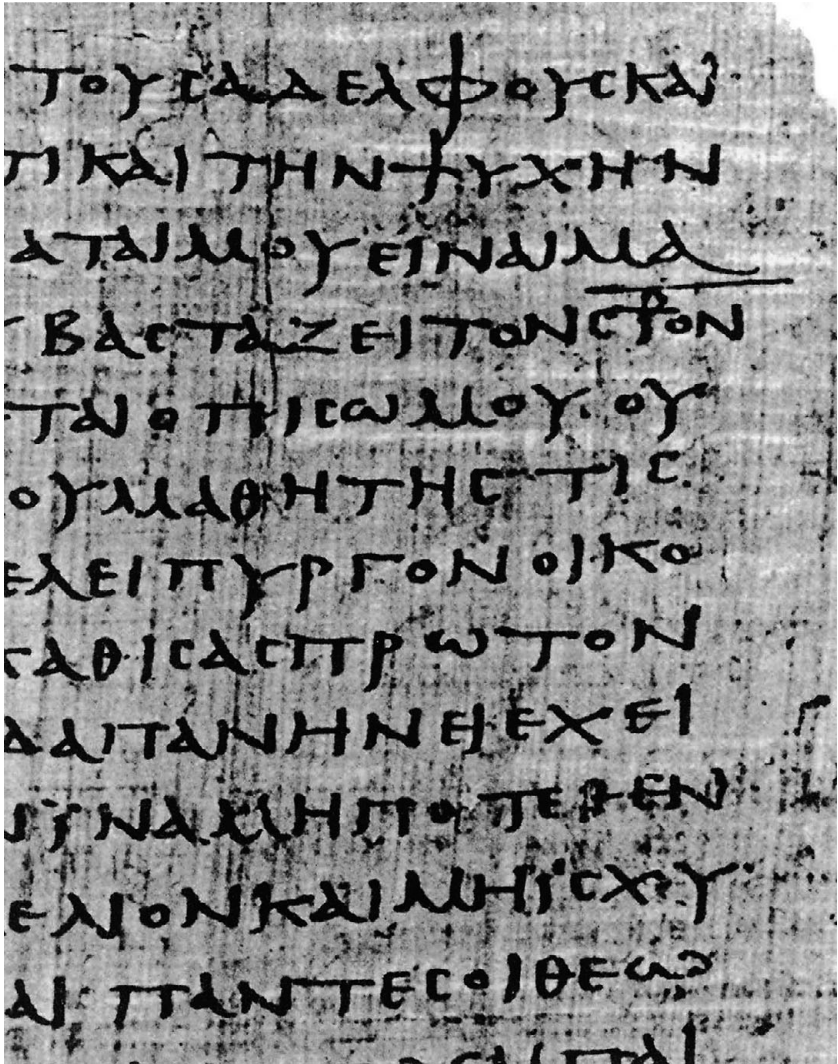 ΤΟΥϹΑΔΕΛΦΟΥϹΚΑΙ
ΤΙΚΑΙΤΗΝΨΥΧΗΝ
ΑΤΑΙΜΟΥΕΙΝΑΙΜΑ
ΒΑϹΤΑΖΕΙΤΟΝϹ⳨ΟΝ
ΤΑΙΟΠΙϹΩΜΟΥ·ΟΥ
ΟΥΜΑΘΗΤΗϹΤΙϹ
ΕΛΕΙΠΥΡΓΟΝΟΙΚΟ
ΚΑΘΙϹΑϹΠΡΩΤΟΝ
ΔΑΠΑΝΗΝΕΙΕΧΕΙ
ΝΪΝΑΜΗΠΟΤΕΘΕΝ
ΕΛΙΟΝΚΑΙΜΗΙϹΧΥ
ΑΙΠΑΝΤΕϹΟΙΘΕΩ